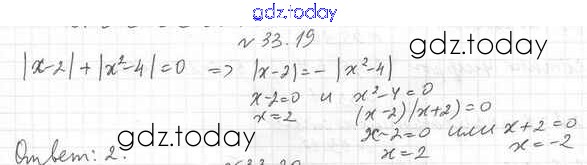 gdz.today
№ 33.19
gdz.today
|x-2| + |x²-4| = 0 => |x-2| = - |x²-4|
x-2=0 и x²-4=0
x=2 (x-2)(x+2)=0
x-2=0 или x+2=0
x=2 x=-2
Ответ: 2.
gdz.today